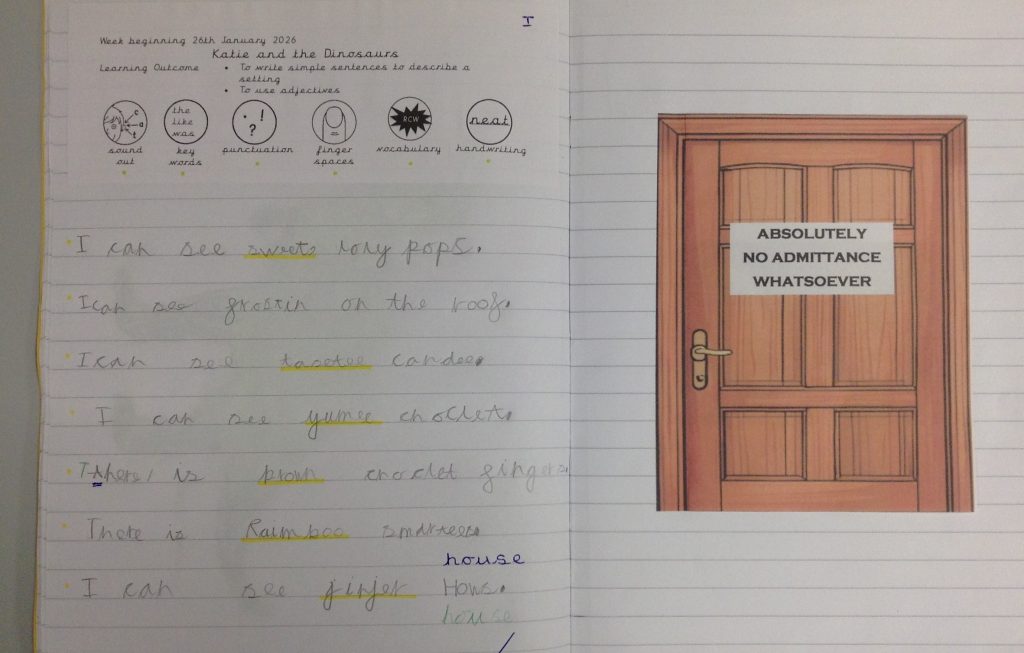 I
Week beginning 26th January 2026
Katie and the Dinosaurs
Learning Outcome • To write simple sentences to describe a
setting
• To use adjectives
c
a
t
the
like
was
. !
?
RCW
neat
sound out
key words
punctuation
finger spaces
vocabulary
handwriting
I can see sweets loly pops.
I can see frostin on the roof.
I can see tasetee candee.
I can see yumee choclet.
There is proun choclet fingers
There is Rainboo smartees.
house
I can see jinjer Hows.
house
ABSOLUTELY
NO ADMITTANCE
WHATSOEVER